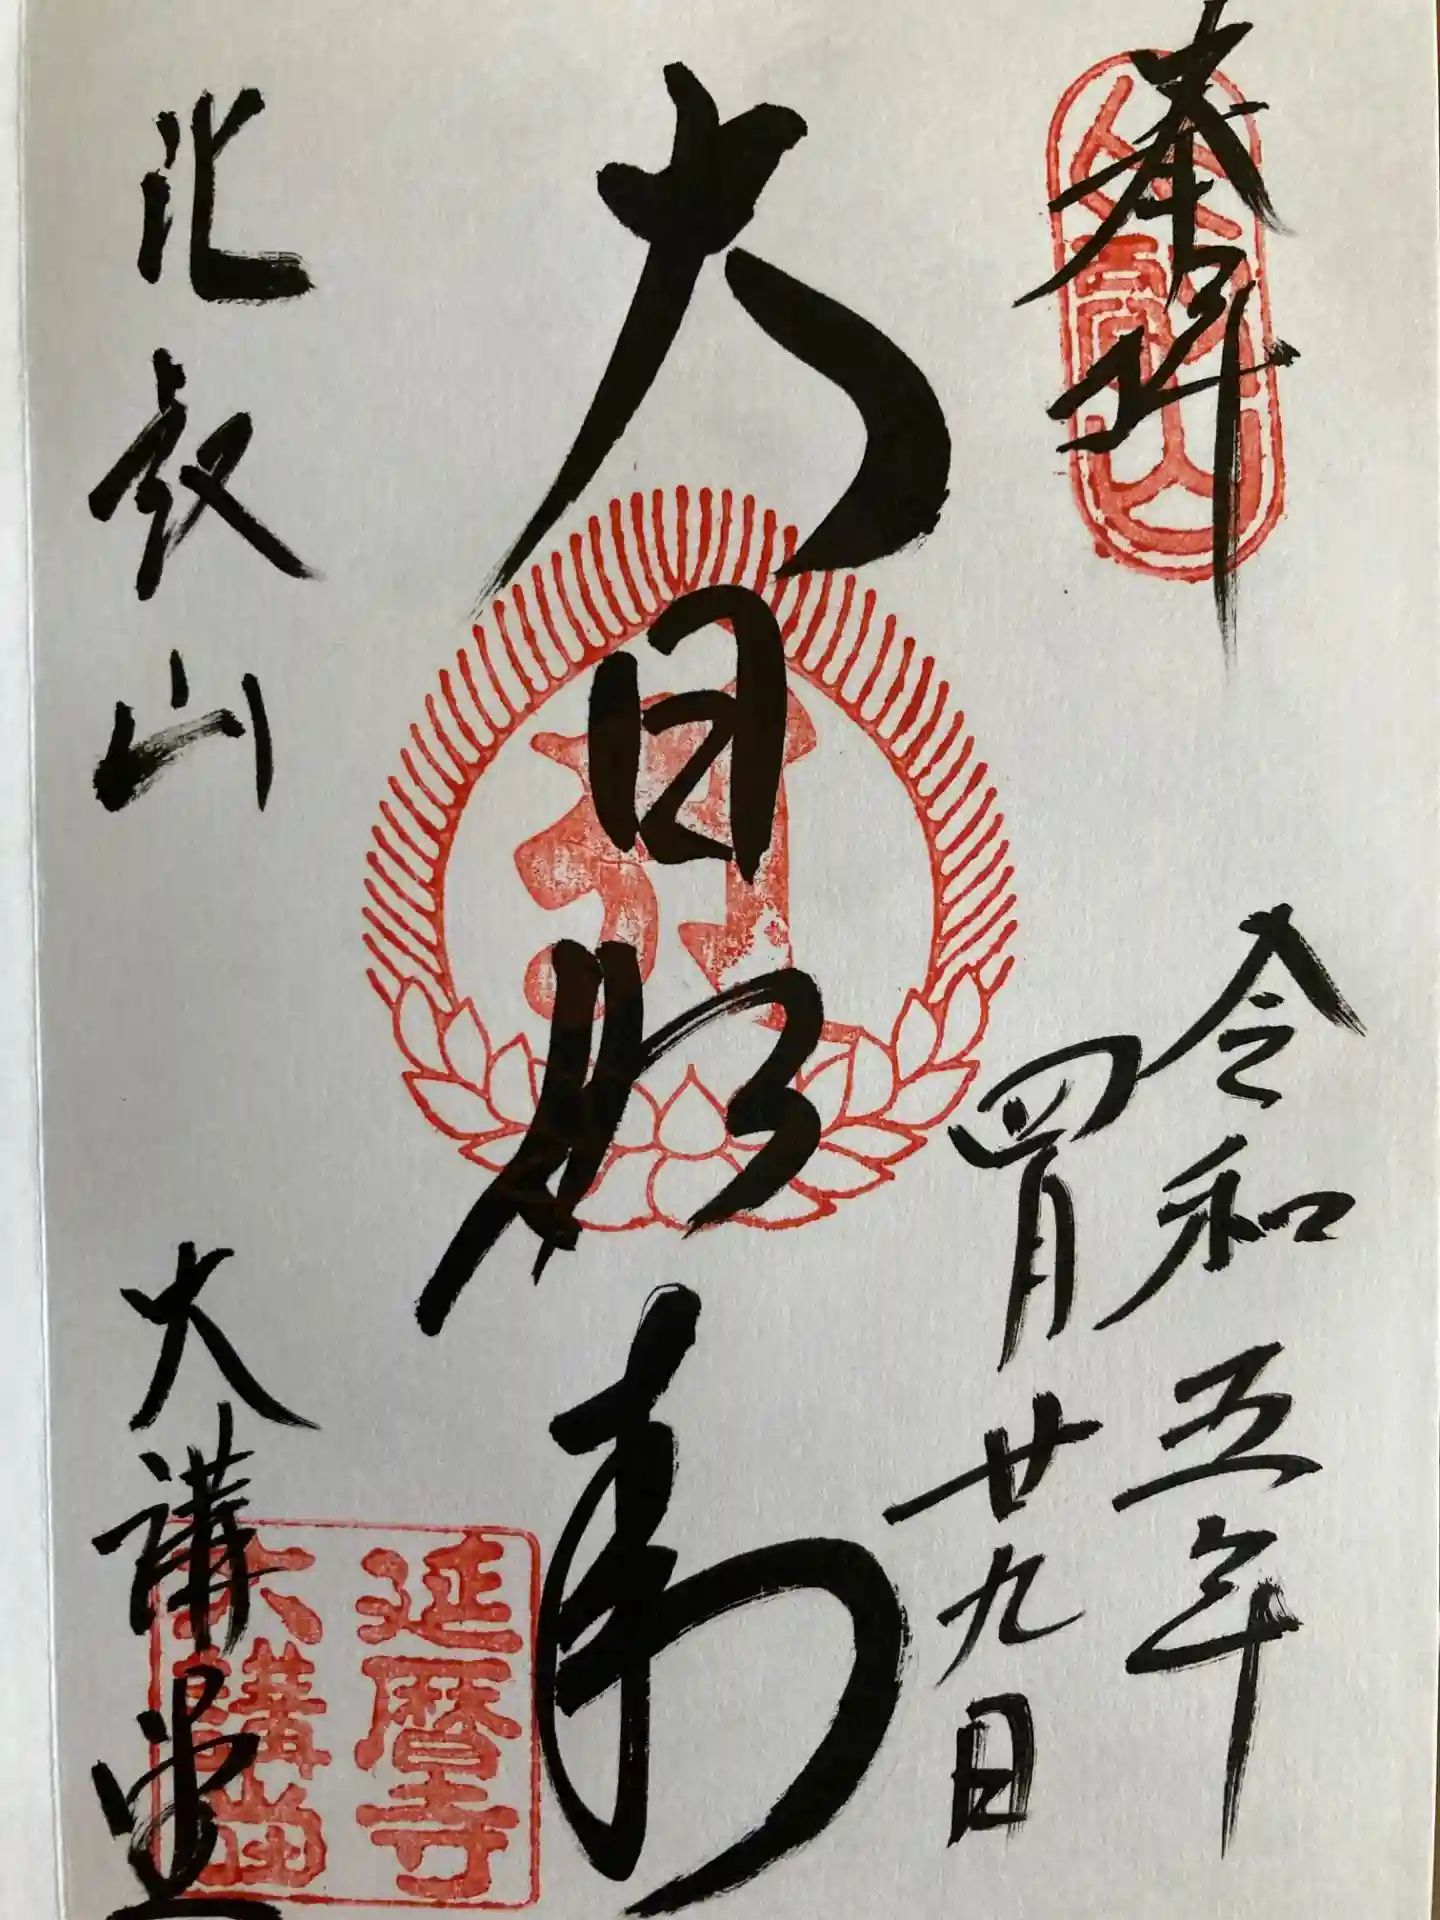 奉拝
令和五年
四月廿九日
大日如来
比叡山
大講堂
延暦寺
大講堂